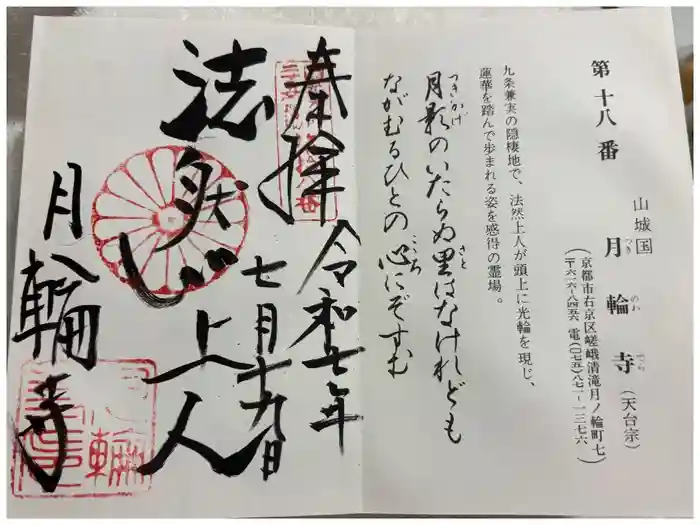 第十八番
山城国
月輪寺（天台宗）
つきのわでら
（京都市右京区嵯峨清滝月ノ輪町七
〒六一六-八四五六 電（〇七五）八七一-一三七六）
九条兼実の隠棲地で、法然上人が頭上に光輪を現じ、
蓮華を踏んで歩まれる姿を感得の霊場。
月影のいたらぬ里はなけれども
つきかげ
さと
ながむるひとの心にぞすむ
こころ
奉拝
令和七年
七月十九日
法然上人
月輪寺